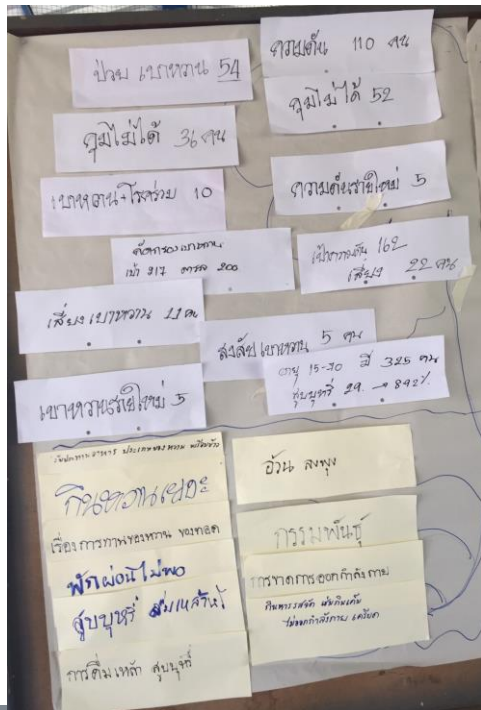 ป่วย เบาหวาน 54
ความดัน 110 คน
คุมไม่ได้ 52
คุมไม่ได้ 36 คน
เบาหวาน+โรคร่วม 10
ความดันรายใหม่ 5
คัดกรองเบาหวาน
เป้า 217 ตรวจ 200
เป้าความดัน 162
เสี่ยง 22 คน
เสี่ยงเบาหวาน 11 คน
สงสัยเบาหวาน 5 คน
อายุ 15-30 ปี 325 คน
สูบบุหรี่ 29 → 8.92%
เบาหวานรายใหม่ 5
อาหาร ประเภทของหวาน
กินหวานเยอะ
เรื่องการทานของหวาน ของทอด
พักผ่อนไม่พอ
สูบบุหรี่ ดื่มเหล้า
การดื่มเหล้า สูบบุหรี่
อ้วน ลงพุง
กรรมพันธุ์
การขาดการออกกำลังกาย
กินอาหารรสจัด เช่นกินเค็ม
ไม่ออกกำลังกาย เครียด